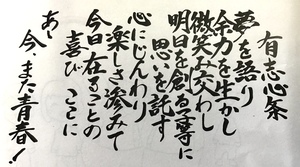 有志心条
夢を語り
余力を生かし
微笑み交わし
明日を創る夢に
思いを託す
心にじんわり
楽しさ滲みて
今日在ることの
喜びことに
あゝ
今、また青春!